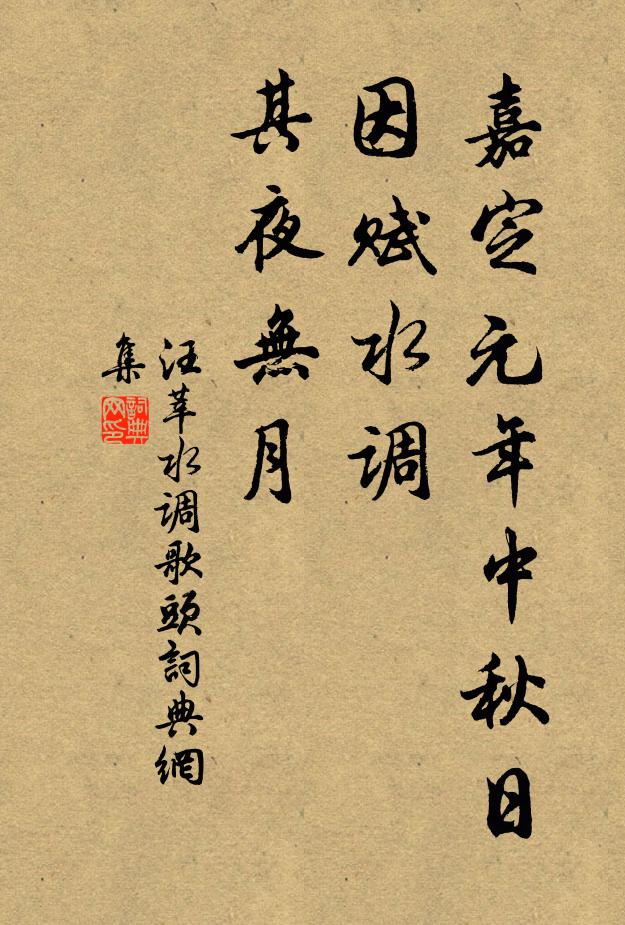 嘉定元年中秋日
因赋水调
其夜無月
汪莘水调歌頭詞典網
集
詞典网印